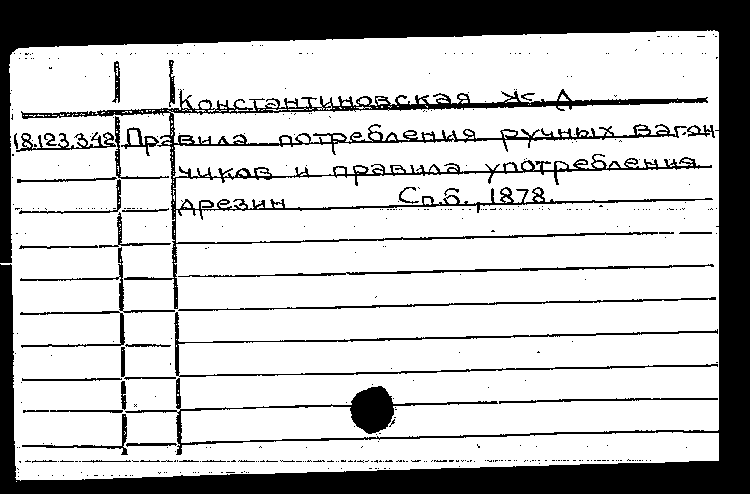 Константиновская ж. д
18.123.3.42 Правила потребления ручных вагон-
чиков и правила употребления
дрезин Спб., 1878.